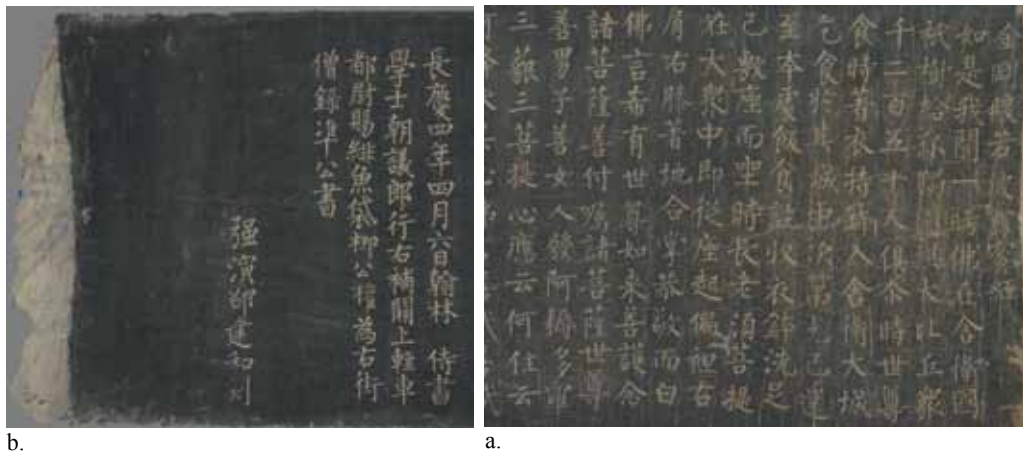 金剛般若波羅蜜經
如是我聞一時佛在舍衛國
祇樹給孤獨園與大比丘衆
千二百五十人俱尒時世尊
食時著衣持鉢入舍衛大城
乞食於其城中次第乞已還
至本處飯食訖收衣鉢洗足
已敷座而坐時長老須菩提
在大衆中即從座起偏袒右
肩右膝著地合掌恭敬而白
佛言希有世尊如來善護念
諸菩薩善付囑諸菩薩世尊
善男子善女人發阿耨多羅
三藐三菩提心應云何住云
a.
長慶四年四月六日翰林 侍書
學士朝議郎行右補闕上輕車
都尉賜緋魚袋柳公權為右街
僧錄準公書
強演邵建和刻
b.